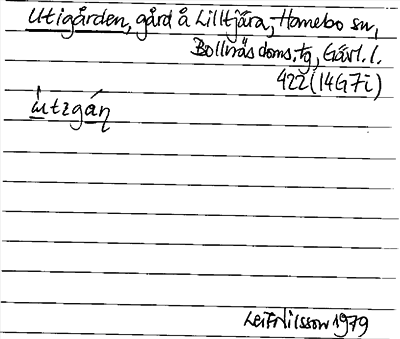 Utigården, gård å Lilltjära, Hanebo sn,
Bollnäs doms.tg, Gävl. l.
422 (14G7i)
ùtigáṇ
Leif Nilsson 1979